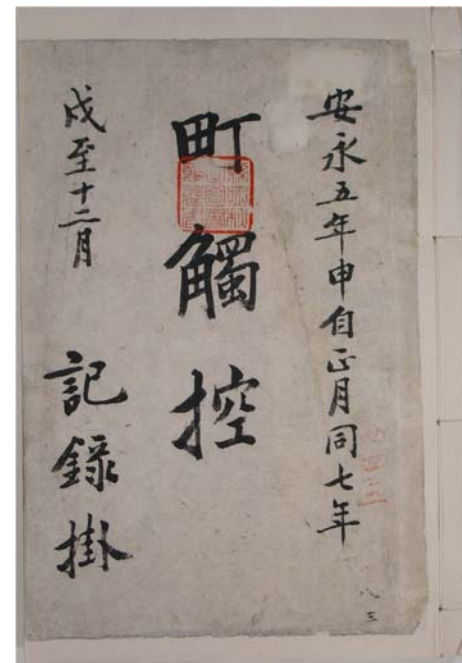 安永五年申自正月同七年
町觸控
戌至十二月
記録掛
八三